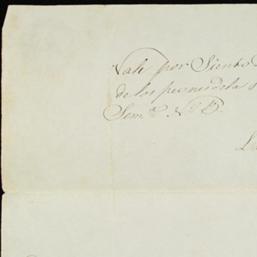 Vale por Siento
de los pesnos dela
Sem.ª N.º B.
L